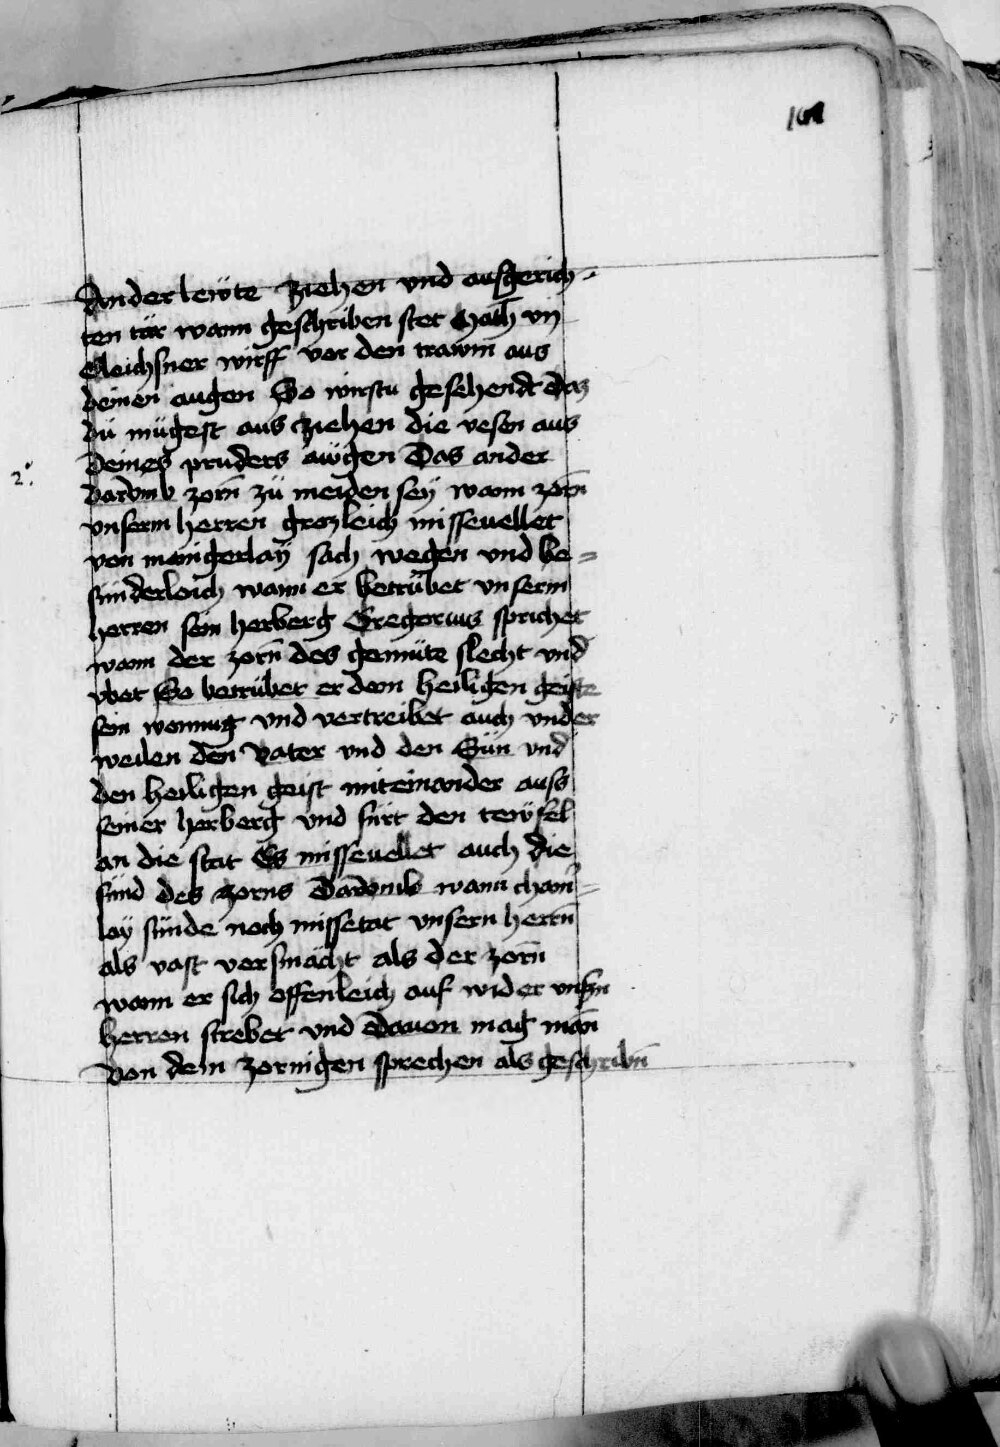 Ander lewte ziehen vnd ausgerich-
ten tür wann geschriben stet Math vij
Gleichsner wirff vor den trawm aus
deinen augen So wirstu gesehendt daz
du mügest aus ziehen die vesen aus
deines pruders awgen Das ander
2.
darvmb zorn zü meiden sey wann zorn
vnserm herren grozleich missevellet
von manigerlay sach wegen vnd be=
sünderleich wann er betrübet vnserm
herren sein herberg Gregorius sprichet
wann der zorn des gemüte slecht vnd
vbet So betrübet er dem heiligen geiste
sein wonnug vnd vertreibet auch vnder
weilen den vater vnd den Sün vnd
den heiligen geist miteinander auss
seiner herberg vnd fürt den tewfel
an die stat Es missevellet auch die
sünd des zorns Darvmb wann chain=
lay sünde noch missetat vnsern herrn
als vast versmächt als der zorn
wann er sich offenleich auf wider vnsern
herren strebet vnd dauon mag man
von dem zornigen sprechen als geschribn